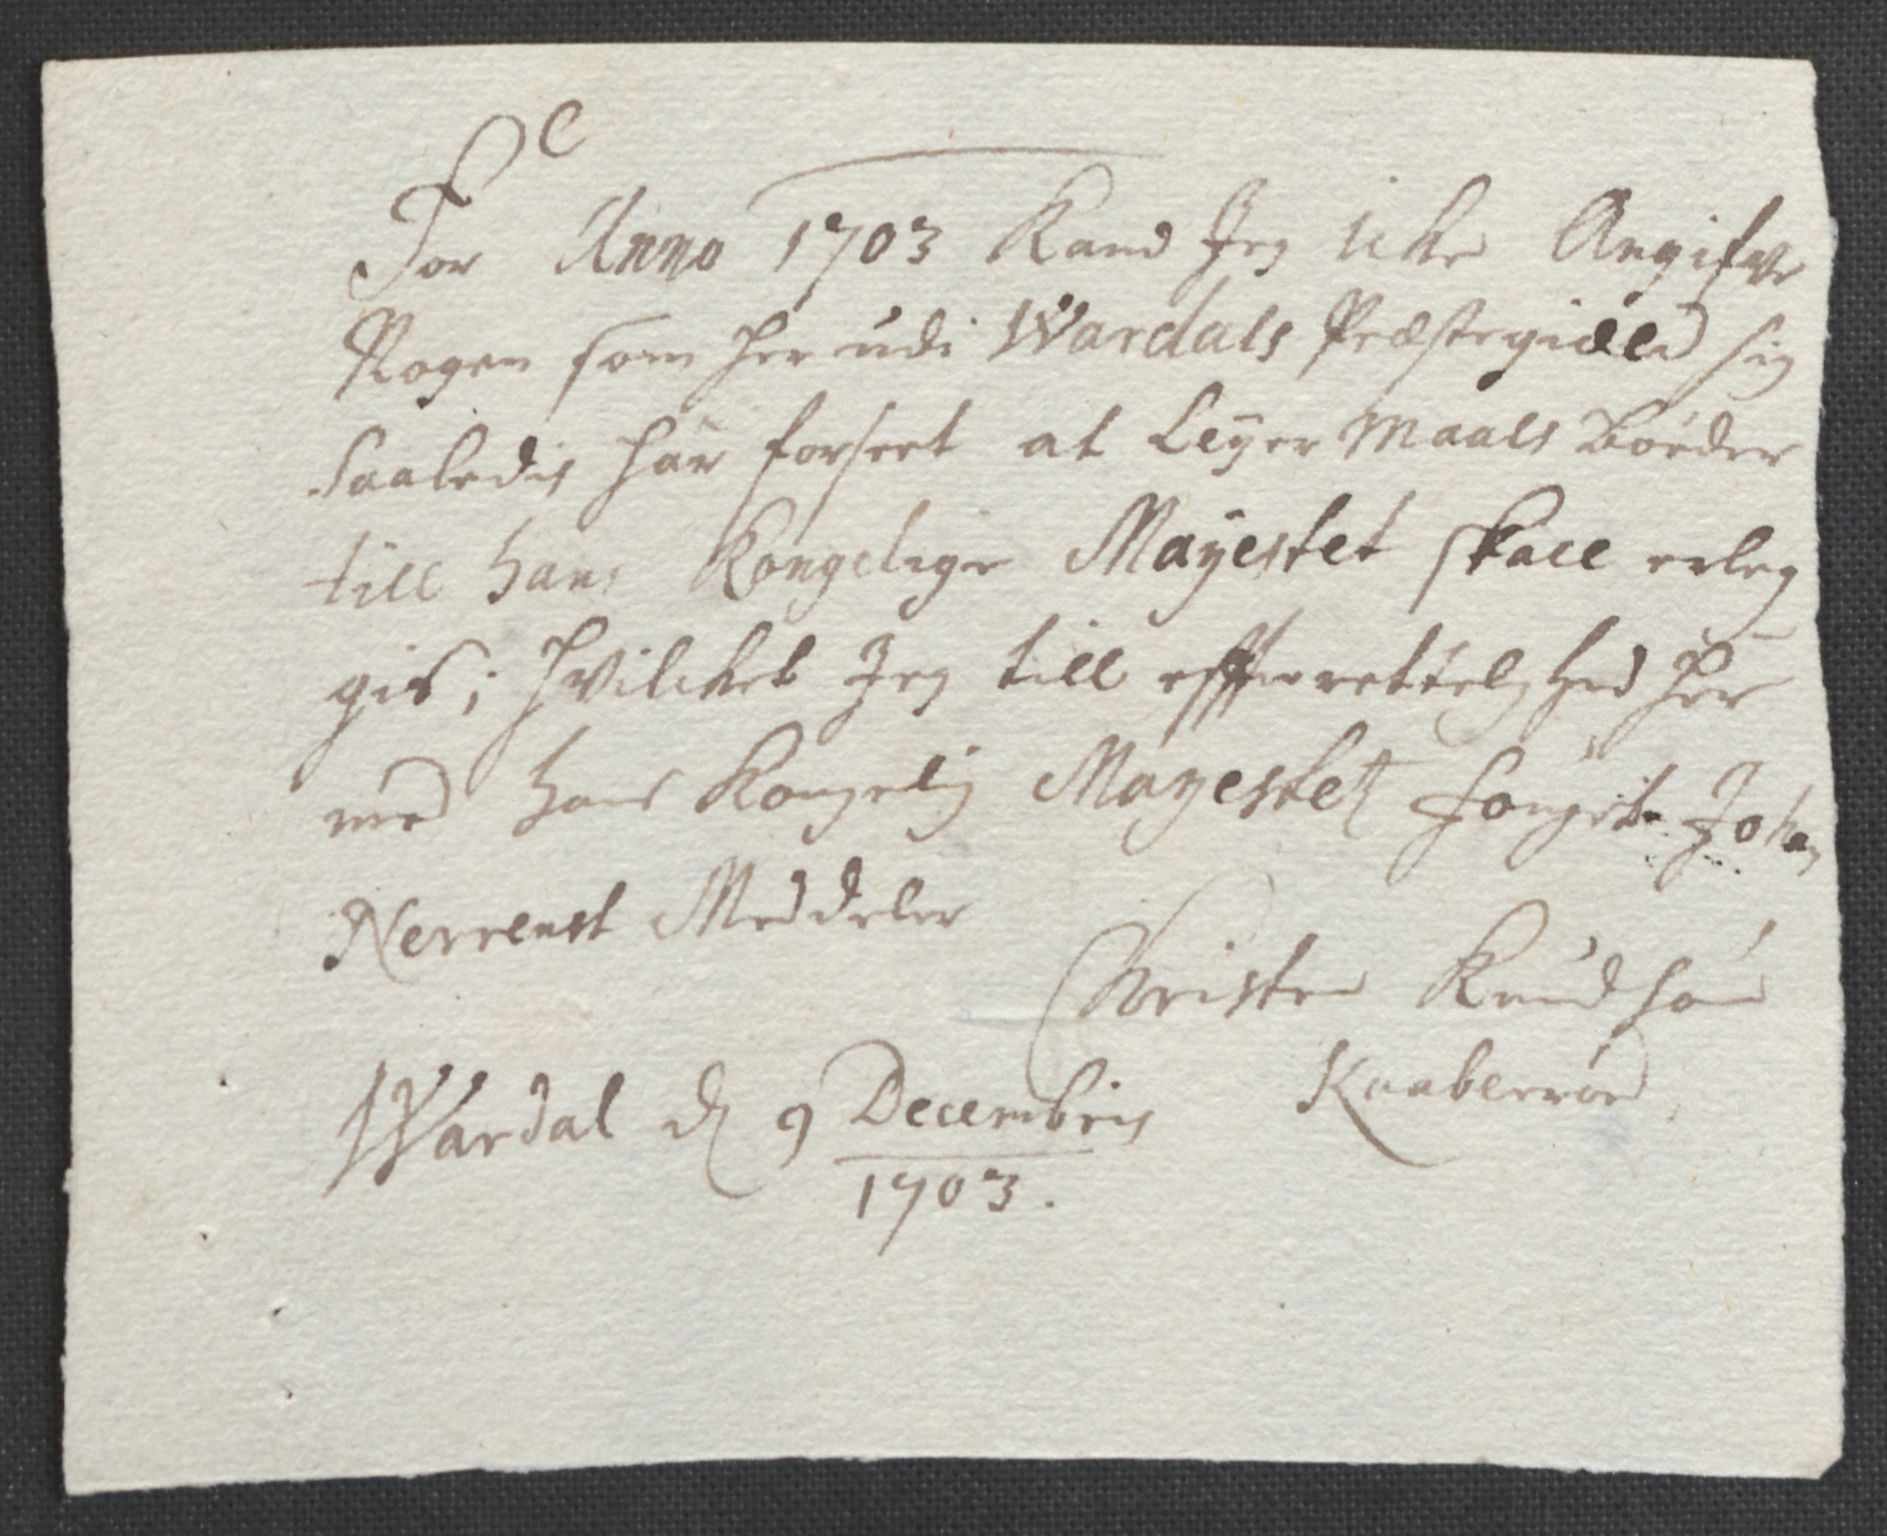 For Anno 1703 Kand Jeg icke Angifve
Nogen som her udi Wardals Præstegield sig
Saaledis har forseet at Leyer Maals Bøeder
till hans Kongelige Mayestet skall erleg
gis; hvilchet Jeg till effterrettelighed her
med hans Kongelig Mayestetz fougit Johan
Meddeler
Christen Knudsøn
Wardal d 9 Decembris
1703.